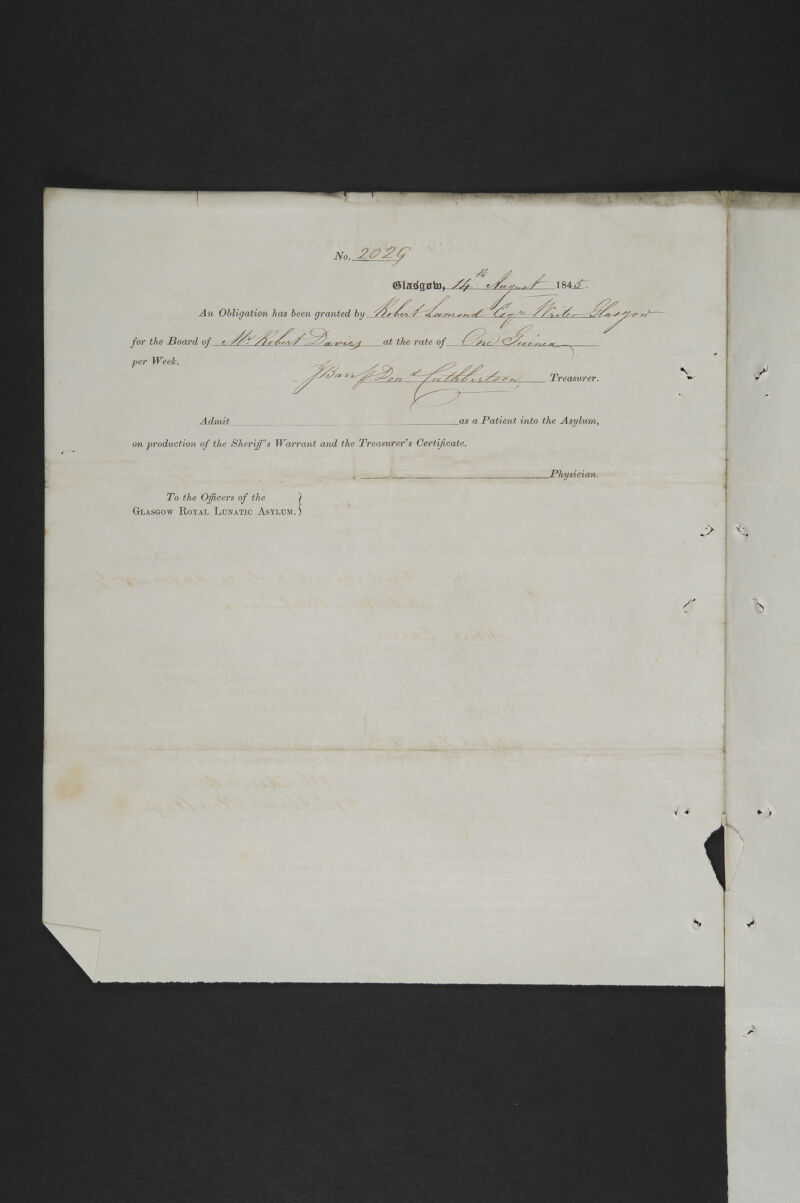 No. 2029
Glasgow, 14th August 1845.
An Obligation has been granted by Robert Lamond Esqr Writer Glasgow
for the Board of Mr Robert Davies at the rate of One Guinea
per Week.
J Barr p Don d Cuthbertson, Treasurer.
Admit as a Patient into the Asylum,
on production of the Sheriff's Warrant and the Treasurer's Certificate.
Physician.
To the Officers of the
GLASGOW ROYAL LUNATIC ASYLUM. }